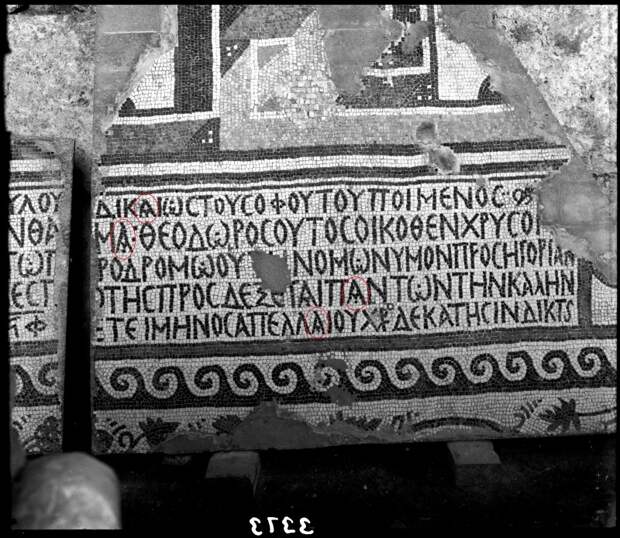 ΥΛΟΥ ΔΙΚΑΙΩϹΤΟΥϹΟΦΟΥΤΟΥΠΟΙΜΕΝΟϹ
ΝΘΑ ΜΑ:ΘΕΟΔΩΡΟϹΟΥΤΟϹΟΙΚΟΘΕΝΧΡΥϹΟ
ΩΤ ΡΟΔΡΟΜΩΟΥ ΝΟΜΩΝΥΜΟΝΠΡΟϹΗΓΟΡΙΑΝ
ΕϹΤ ΟΤΗϹΠΡΟϹΔΕΞΕΤΑΙΠΑΝΤΩΝΤΗΝΚΑΛΗΝ
Φ ΕΤΕΙΜΗΝΟϹΑΠΕΛΛΑΙΟΥΧΡΔΕΚΑΤΗϹΙΝΔΙΚΤS
3373